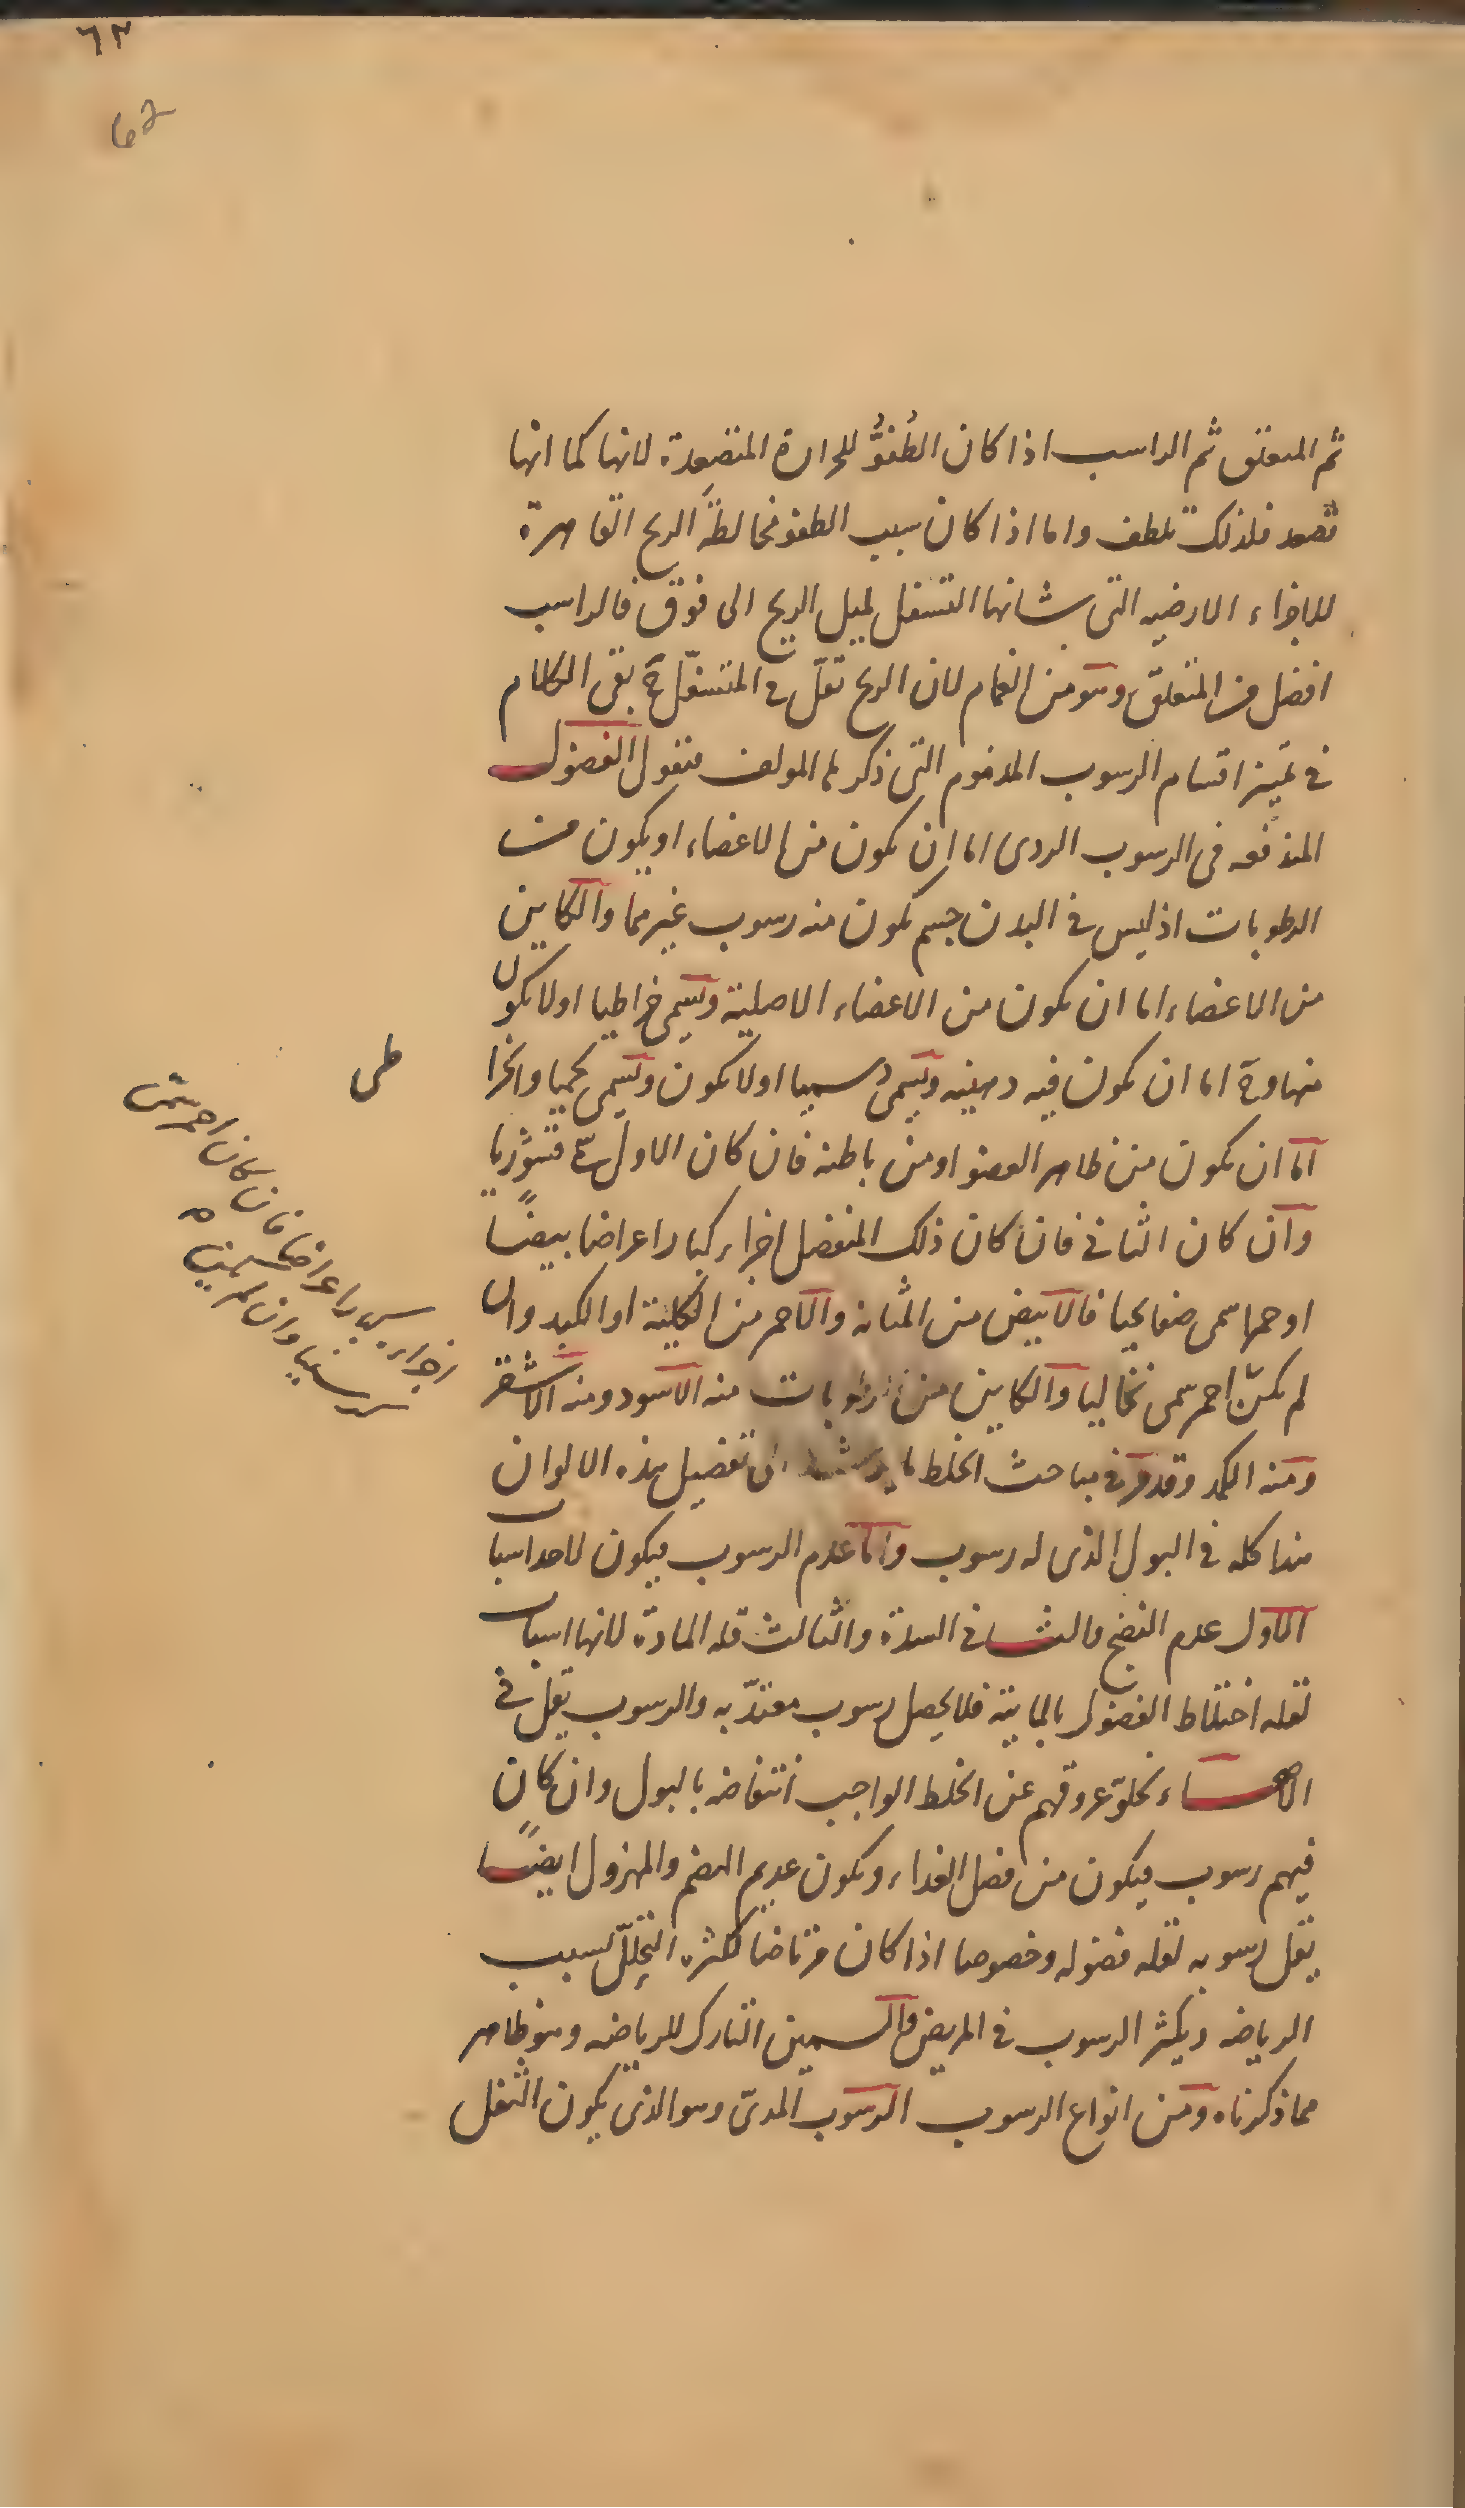 ٦٢
62
ثم المتعلق ثم الراسب اذا كان الطُفوُّ للحرارة المتصعِدة لانها كما انها
تصعد فلذلك تلطف واما اذا كان سبب الطفو مخالطة الريح القاهرة
للاجزاء الارضيه التى شانها التسفل لميل الريح الى فوق فالراسب
افضل من المتعلق وهو من الغمام لان الريح تقلّ فى المتسفّل ح بقى الكلام
فى تميز اقسام الرسوب المذموم التى ذكرها المولف فنقول الفضول
المندفعه فى الرسوب الردى اما ان يكون من الاعضاء او يكون من
الرطوبات اذ ليس فى البدن جسم يكون منه رسوب غيرهما والكاين
من الاعضاء اما ان يكون من الاعضاء الاصلية ويسمى خراطيا اولا يكون
منها وح اما ان يكون فيه دهنيه ويسمى دسميا اولا يكون ويسمى لحميا والخرا
طى
اما ان يكون من ظاهر العضو او من باطنه فان كان الاول سمى قشوريا
وان كان الثانى فان كان ذلك المنفصل اجزاء كبارا عراضا بيضًا
او حمرا سمى صفايحيا فالابيض من المثانة والاحمر من الكلية او الكبد وان
اجزاء عراضا فان كان احمر سمى
كرسنيا وان لم
لم يكن احمر سمى نخاليا والكاين من الرطوبات منه الاسود ومنه الاشقر
ومنه الكمد وقد مر فى مباحث الخلط ما يرشد الى تفصيل هذه الالوان
هذا كله فى البول الذى له رسوب واما عدم الرسوب فيكون لاحد اسباب
الاول عدم النضج والثانى السدة والثالث قله المادة لانها اسباب
لقله اختلاط الفضول بالمايية فلا يحصل رسوب معتدّ به والرسوب يقل فى
الاصحاء لخلوّ عروقهم عن الخلط الواجب انتفاضه بالبول وان كان
فيهم رسوب فيكون من فضل الغداء ويكون عديم الهضم والمهزول ايضًا
يقل رسوبه لقله فضوله وخصوصا اذا كان مرتاضا لكثره التحلّل بسبب
الرياضه ويكثر الرسوب فى المريض والسمين التارك للرياضه وهو ظاهر
مما ذكرناه ومن انواع الرسوب الرسوب المدىّ وهو الذى يكون الثفل